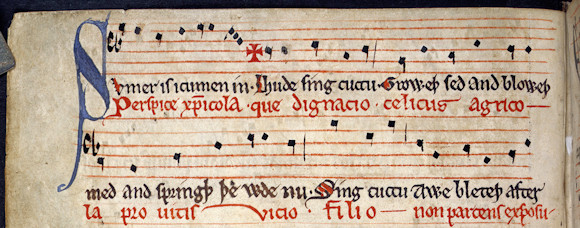 Svmer is icumen in · Lhude sing cuccu · Groweþ sed and bloweþ
Perspice xp̅icola · que dignacio · celicus agrico—
med and springþ þe wde nu · Sing cuccu Awe bleteþ after
la pro uitis vicio · filio — non parcens exposu-